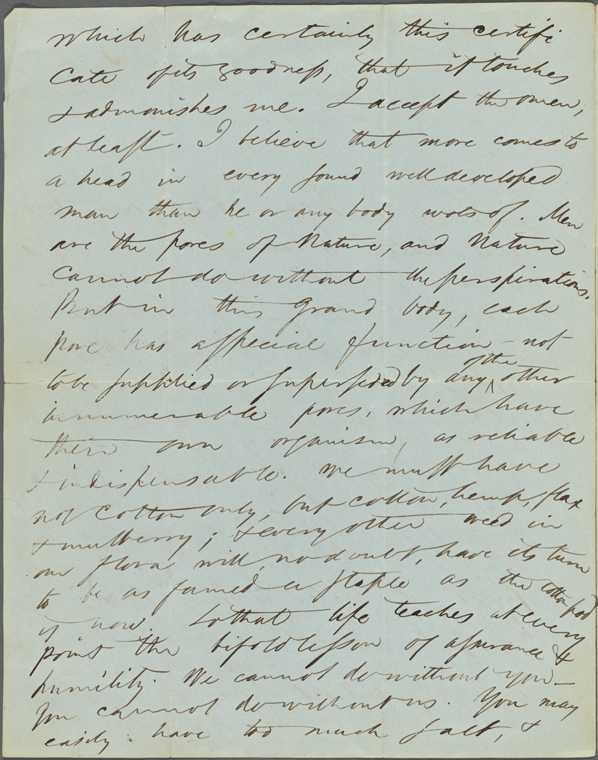 which has certainly this certifi
cate of its goodness, that it touches
& admonishes me. I accept the omen,
at least. I believe that more comes to
a head in every sound well developed
man than he or any body wots of. Men
are the pores of Nature, and Nature
cannot do without the perspirations.
But in this grand body, each
pore has a special function – not
to be supplied or superseded by any of the other
innumerable pores, which have
their own organism, as reliable
& indispensable. We must have
not cotton only, but cotton, hemp, flax
& mulberry; & every other weed in
our flora will, no doubt, have its turn
to be as famed a staple as the cotton pod
is now. So that life teaches at every
point the bifold lesson of assurance &
humility. We cannot do without you –
you cannot do without us. You may
easily have too much salt, &